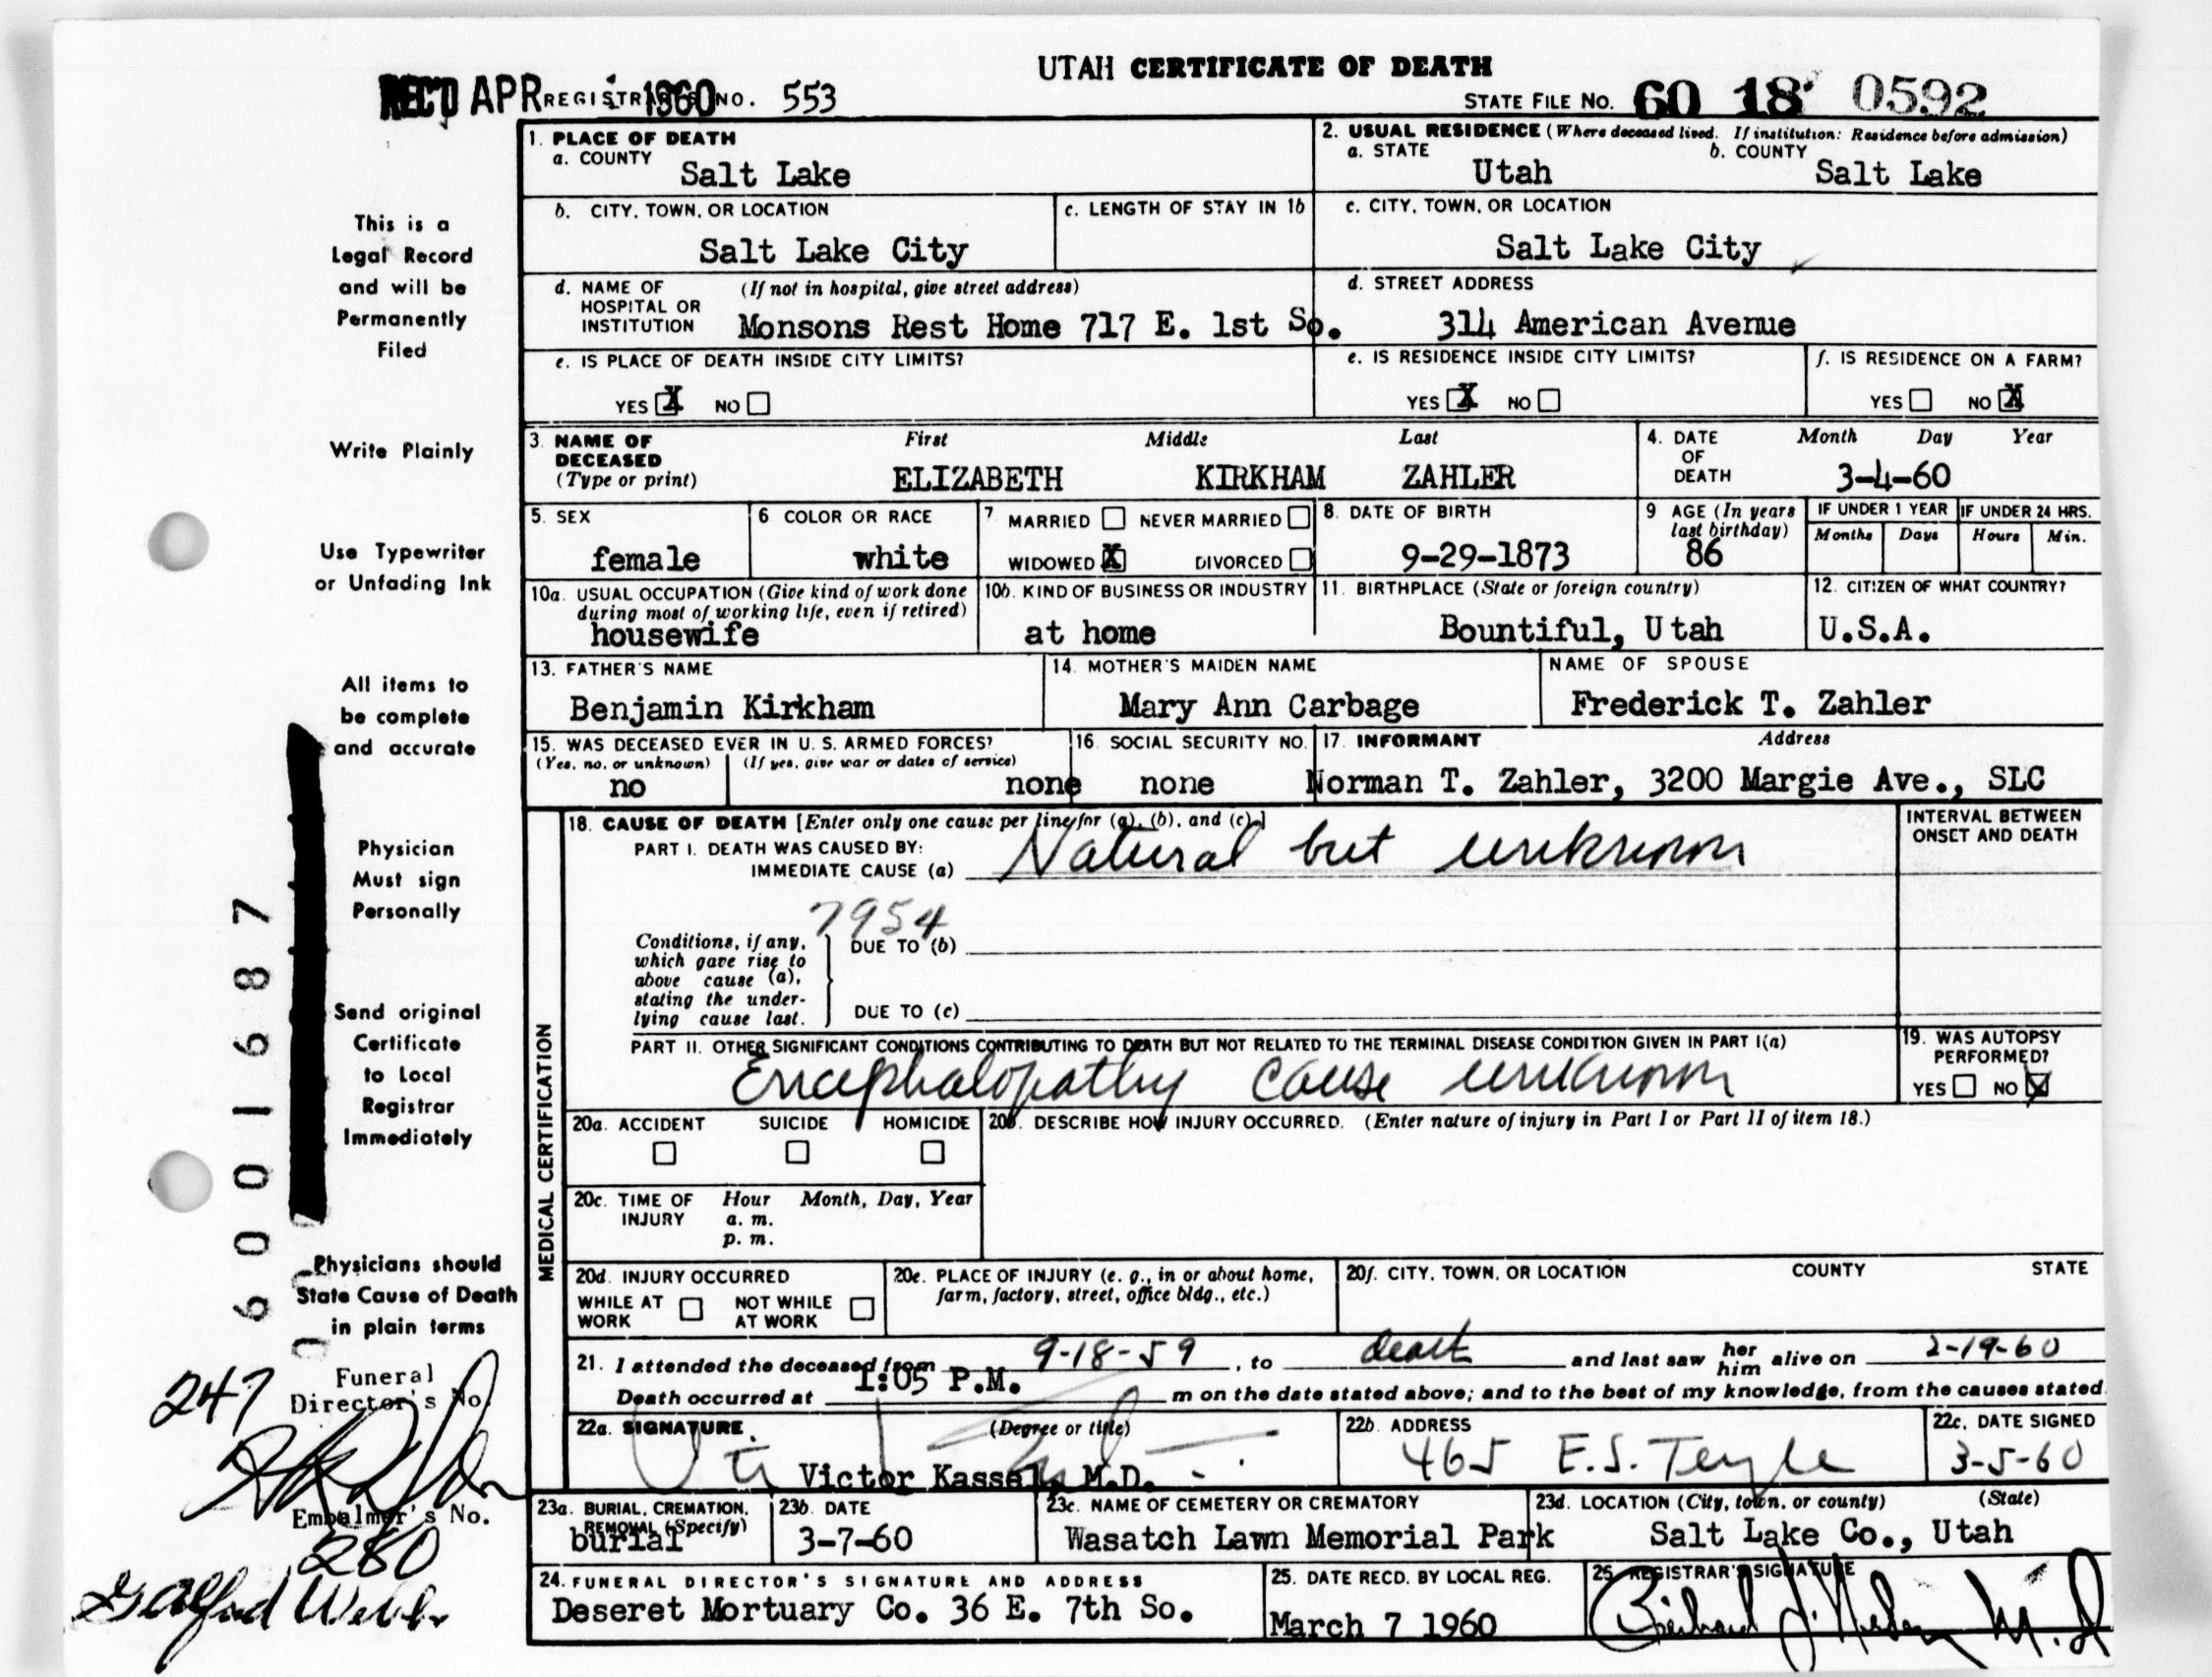 UTAH CERTIFICATE OF DEATH
REC'D APR 1960 REGISTRAR'S NO. 553
STATE FILE NO. 60 18 0592
1. PLACE OF DEATH
a. COUNTY
Salt Lake
2. USUAL RESIDENCE (Where deceased lived. If institution: Residence before admission)
a. STATE b. COUNTY
Utah Salt Lake
b. CITY, TOWN, OR LOCATION
Salt Lake City
c. LENGTH OF STAY IN 1b
c. CITY, TOWN, OR LOCATION
Salt Lake City
d. NAME OF HOSPITAL OR INSTITUTION (If not in hospital, give street address)
Monsons Rest Home 717 E. 1st So.
d. STREET ADDRESS
314 American Avenue
e. IS PLACE OF DEATH INSIDE CITY LIMITS?
YES X NO
e. IS RESIDENCE INSIDE CITY LIMITS?
YES X NO
f. IS RESIDENCE ON A FARM?
YES NO X
3. NAME OF DECEASED (Type or print)
First Middle Last
ELIZABETH KIRKHAM ZAHLER
4. DATE OF DEATH Month Day Year
3-4-60
5. SEX
female
6 COLOR OR RACE
white
7 MARRIED NEVER MARRIED
WIDOWED X DIVORCED
8. DATE OF BIRTH
9-29-1873
9 AGE (In years last birthday)
86
IF UNDER 1 YEAR
Months Days
IF UNDER 24 HRS.
Hours Min.
10a. USUAL OCCUPATION (Give kind of work done during most of working life, even if retired)
housewife
10b. KIND OF BUSINESS OR INDUSTRY
at home
11. BIRTHPLACE (State or foreign country)
Bountiful, Utah
12. CITIZEN OF WHAT COUNTRY?
U.S.A.
13. FATHER'S NAME
Benjamin Kirkham
14. MOTHER'S MAIDEN NAME
Mary Ann Carbage
NAME OF SPOUSE
Frederick T. Zahler
15. WAS DECEASED EVER IN U. S. ARMED FORCES?
(Yes, no, or unknown) (If yes, give war or dates of service)
no none
16. SOCIAL SECURITY NO.
none
17. INFORMANT Address
Norman T. Zahler, 3200 Margie Ave., SLC
MEDICAL CERTIFICATION
18. CAUSE OF DEATH [Enter only one cause per line for (a), (b), and (c).]
PART I. DEATH WAS CAUSED BY:
IMMEDIATE CAUSE (a) Natural but unknown
INTERVAL BETWEEN ONSET AND DEATH
7954
Conditions, if any, which gave rise to above cause (a), stating the underlying cause last.
DUE TO (b)
DUE TO (c)
PART II. OTHER SIGNIFICANT CONDITIONS CONTRIBUTING TO DEATH BUT NOT RELATED TO THE TERMINAL DISEASE CONDITION GIVEN IN PART I(a)
Encephalopathy cause unknown
19. WAS AUTOPSY PERFORMED?
YES NO X
20a. ACCIDENT SUICIDE HOMICIDE
20b. DESCRIBE HOW INJURY OCCURRED. (Enter nature of injury in Part I or Part II of item 18.)
20c. TIME OF INJURY Hour Month, Day, Year
a. m.
p. m.
20d. INJURY OCCURRED
WHILE AT WORK NOT WHILE AT WORK
20e. PLACE OF INJURY (e. g., in or about home, farm, factory, street, office bldg., etc.)
20f. CITY, TOWN, OR LOCATION COUNTY STATE
21. I attended the deceased from 9-18-59, to death and last saw her him alive on 2-19-60
Death occurred at 1:05 P.M. m on the date stated above; and to the best of my knowledge, from the causes stated.
22a. SIGNATURE (Degree or title)
Victor Kassel, M.D.
22b. ADDRESS
465 E.S. Temple
22c. DATE SIGNED
3-5-60
23a. BURIAL, CREMATION, REMOVAL (Specify)
burial
23b. DATE
3-7-60
23c. NAME OF CEMETERY OR CREMATORY
Wasatch Lawn Memorial Park
23d. LOCATION (City, town, or county) (State)
Salt Lake Co., Utah
24. FUNERAL DIRECTOR'S SIGNATURE AND ADDRESS
Deseret Mortuary Co. 36 E. 7th So.
25. DATE RECD. BY LOCAL REG.
March 7 1960
26. REGISTRAR'S SIGNATURE
M.D.
This is a
Legal Record
and will be
Permanently
Filed
Write Plainly
Use Typewriter
or Unfading Ink
All items to
be complete
and accurate
Physician
Must sign
Personally
Send original
Certificate
to Local
Registrar
Immediately
Physicians should
State Cause of Death
in plain terms
Funeral
Director's No.
247
Embalmer's No.
280
Webb
6001687